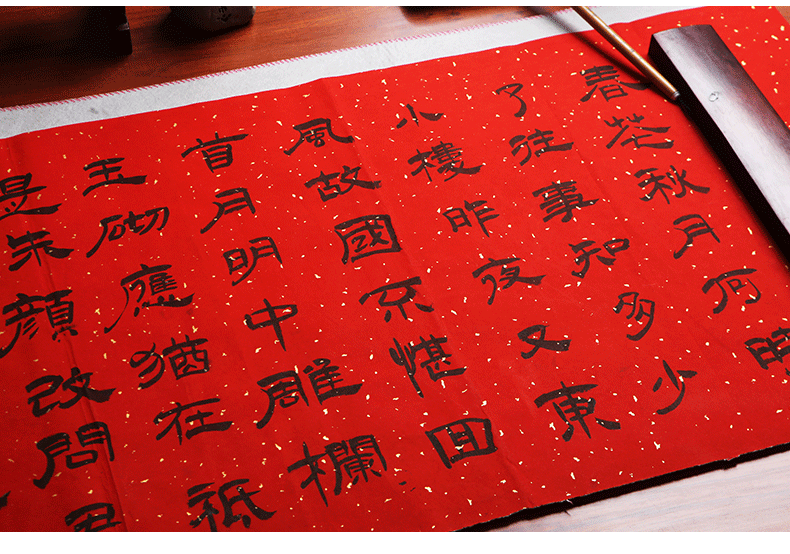 春花秋月何時
了往事知多少
小樓昨夜又東
風故國不堪回
首月明中雕欄
玉砌應猶在祇
是朱顔改問君